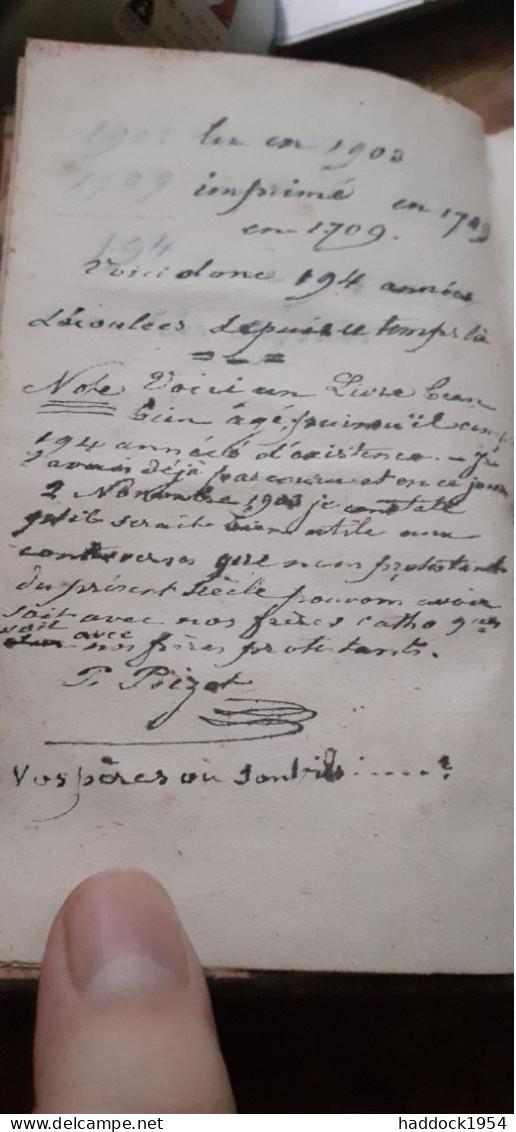 lu en 1903
imprimé en 1709
en 1709.
194
Voici donc 194 années
écoulées depuis ce temps là
Note Voici un Livre bien
bien âgé, puisqu'il
194 années d'existence. - je
l'avais déjà parcouru et en ce jour
2 Novembre 1903 je constate
qu'il serait bien utile aux
controverses que nous protestants
du présent siècle pouvons avoir
soit avec nos frères catho ques
soit avec nos frères protestants.
P. Prizot
Vos pères où sont-ils .....?
haddock1954